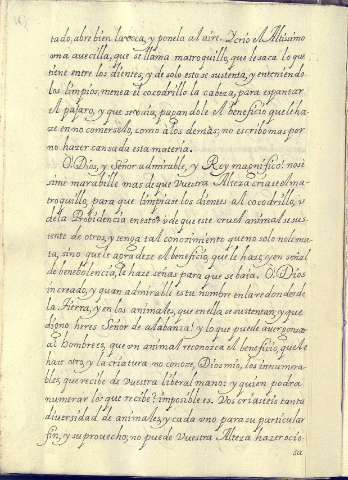 tado, abre bien la voca, y ponela al aire. Y crió el Altissimo
una avecilla, que se llama matroguillo, que le saca lo que
tiene entre los dientes, y de solo esto se sustenta, y en teniendo
los limpios, menea el cocodrillo la cabeza, para espantar
el pájaro, y que se vaia, pagandole el beneficio que le ha-
ze en no comerselo, como á los demás; no escribo mas por
no hazer cansada esta materia.
O Dios, y Señor admirable, y Rey magnifico! no sé
si me maraville mas de que Vuestra Alteza criase el ma-
troguillo, para que limpiase los dientes al cocodrillo, y
de la Probidencia en esto; ó de que este cruel animal se sus-
tente de otro, y tenga tal conocimiento que no solo no le ma-
ta, sino que le agradeze el beneficio, que le haze, y en señal
de benebolencia, le haze señas para que se baia. O Dios
increado, y quan admirable es tu nombre en la redondez de
la tierra, y en los animales, que en ella se sustentan; y que
digno heres Señor de alabanza! y lo que puede avergonzar
al hombre es, que un animal reconozca el beneficio, que le
haze otro, y la criatura no conoze, Dios mio, los innumera-
bles, que recibe de vuestra liberal mano: y quien podra
numerar los que recibe? imposible es. Vos criasteis tanta
diversidad de animales, y cada uno para su particular
fin, y su provecho, no puede Vuestra Alteza hazer ocio-
sa